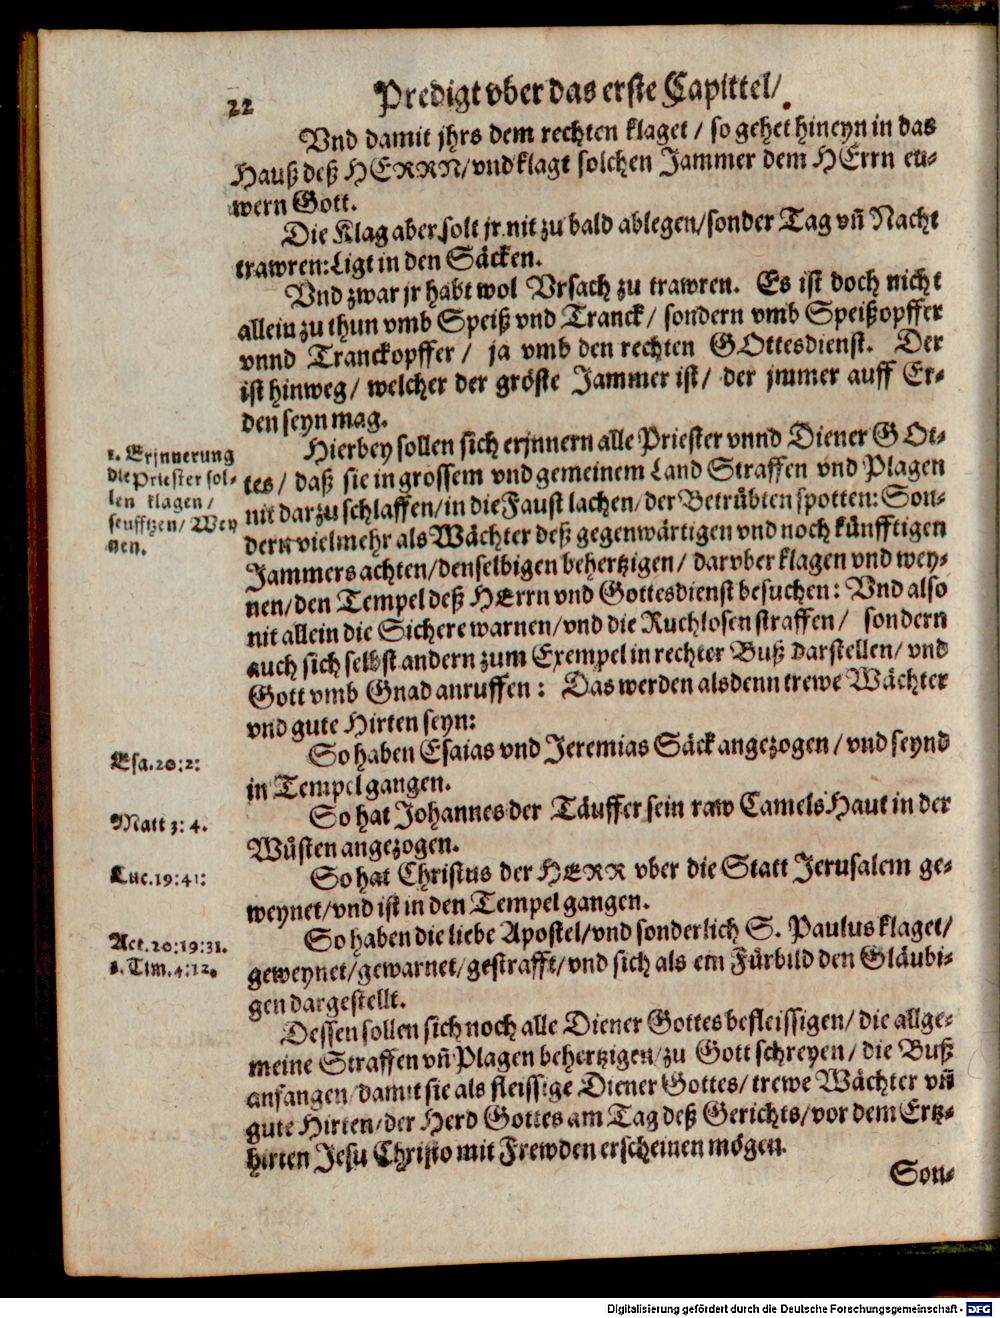 22
Predigt vber das erste Capittel/
Vnd damit jhrs dem rechten klaget / so gehet hineyn in das
Hauß deß HERRN/vnd klagt solchen Jammer dem HErrn eu-
wern Gott.
Die Klag aber solt jr nit zu bald ablegen/sonder Tag vñ Nacht
trawren: Ligt in den Säcken.
Vnd zwar jr habt wol Vrsach zu trawren. Es ist doch nicht
allein zu thun vmb Speiß vnd Tranck / sondern vmb Speißopffer
vnnd Tranckopffer / ja vmb den rechten GOttesdienst. Der
ist hinweg / welcher der gröste Jammer ist / der jmmer auff Er-
den seyn mag.
1. Erjnnerung
die Priester sol-
len klagen /
seufftzen / Wey
nen.
Hierbey sollen sich erjnnern alle Priester vnnd Diener GOt-
tes / daß sie in grossem vnd gemeinem Land Straffen vnd Plagen
nit darzu schlaffen/in die Faust lachen/der Betrübten spotten: Son-
dern vielmehr als Wächter deß gegenwärtigen vnd noch künfftigen
Jammers achten/denselbigen behertzigen/ darvber klagen vnd wey-
nen/den Tempel deß HErrn vnd Gottesdienst besuchen: Vnd also
nit allein die Sichere warnen/vnd die Ruchlosen straffen/ sondern
auch sich selbst andern zum Exempel in rechter Buß darstellen/ vnd
Gott vmb Gnad anruffen: Das werden alsdenn trewe Wächter
vnd gute Hirten seyn:
Esa.20:2:
So haben Esaias vnd Jeremias Säck angezogen/vnd seynd
in Tempel gangen.
Matt 3: 4.
So hat Johannes der Täuffer sein raw Camels Haut in der
Wüsten angezogen.
Luc.19:41:
So hat Christus der HERR vber die Statt Jerusalem ge-
weynet/vnd ist in den Tempel gangen.
Act.20:19:31.
1. Tim.4:12.
So haben die liebe Apostel/vnd sonderlich S. Paulus klaget/
geweynet/gewarnet/gestrafft/vnd sich als ein Fürbild den Gläubi-
gen dargestellt.
Dessen sollen sich noch alle Diener Gottes befleissigen/ die allge-
meine Straffen vñ Plagen behertzigen/zu Gott schreyen/ die Buß
anfangen/damit sie als fleissige Diener Gottes/ trewe Wächter vñ
gute Hirten/der Herd Gottes am Tag deß Gerichts/vor dem Ertz-
hirten Jesu Christo mit Frewden erscheinen mögen.
Son-
Digitalisierung gefördert durch die Deutsche Forschungsgemeinschaft - DFG